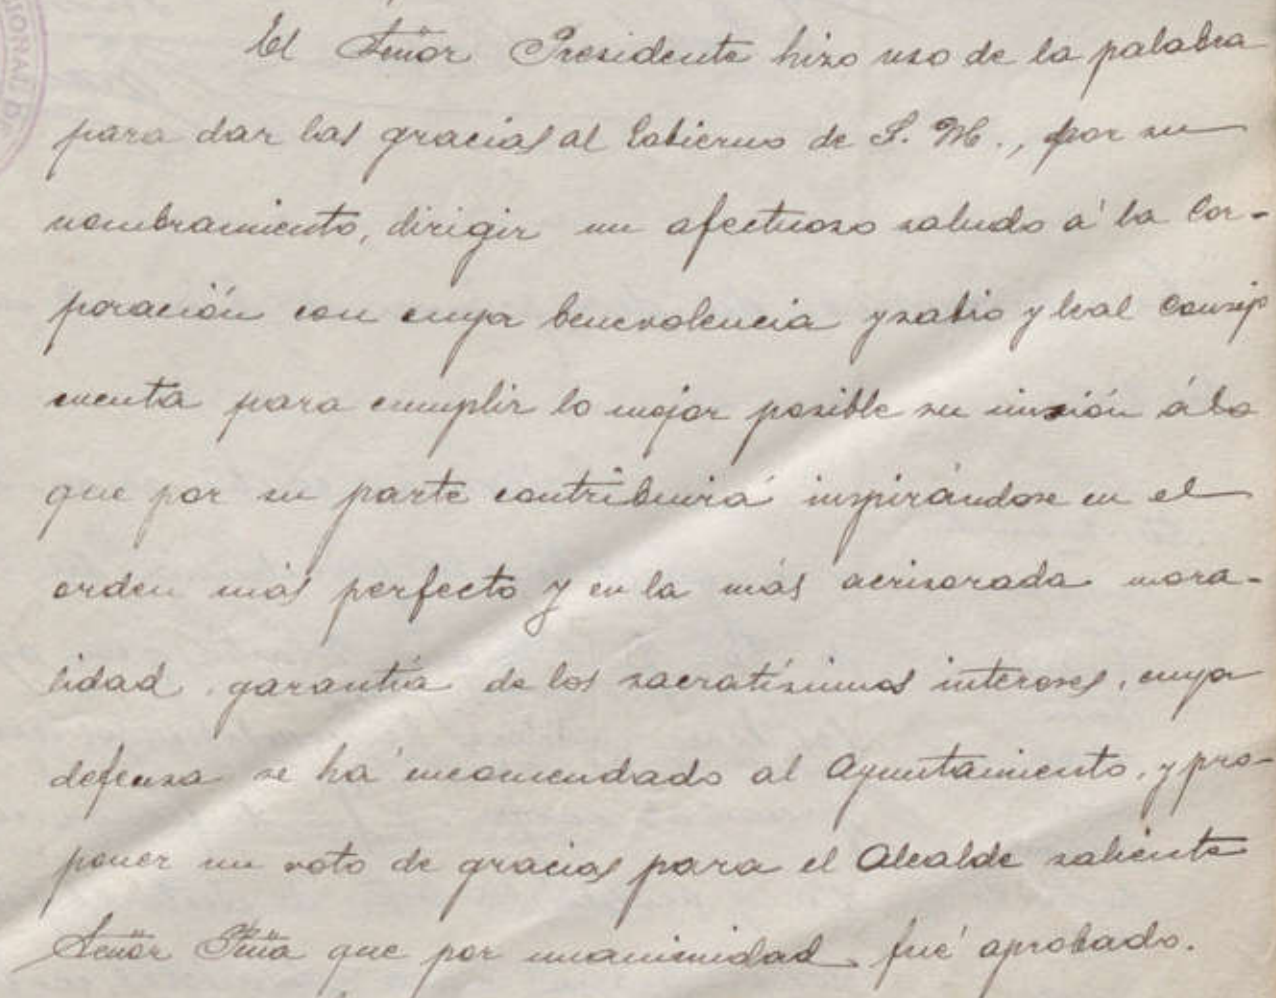 SIONAL D
El Señor Presidente hizo uso de la palabra
para dar las gracias al Gobierno de S. M., por su
nombramiento, dirigir un afectuoso saludo á la Cor-
poración con cuya benevolencia y sabio y leal consejo
cuenta para cumplir lo mejor posible su misión á lo
que por su parte contribuirá inspirándose en el
orden más perfecto y en la más acrisorada mora-
lidad garantía de los sacratísimos intereses, cuya
defensa se ha encomendado al Ayuntamiento, y pro-
poner un voto de gracias para el Alcalde saliente
Señor que por unanimidad fué aprobado.